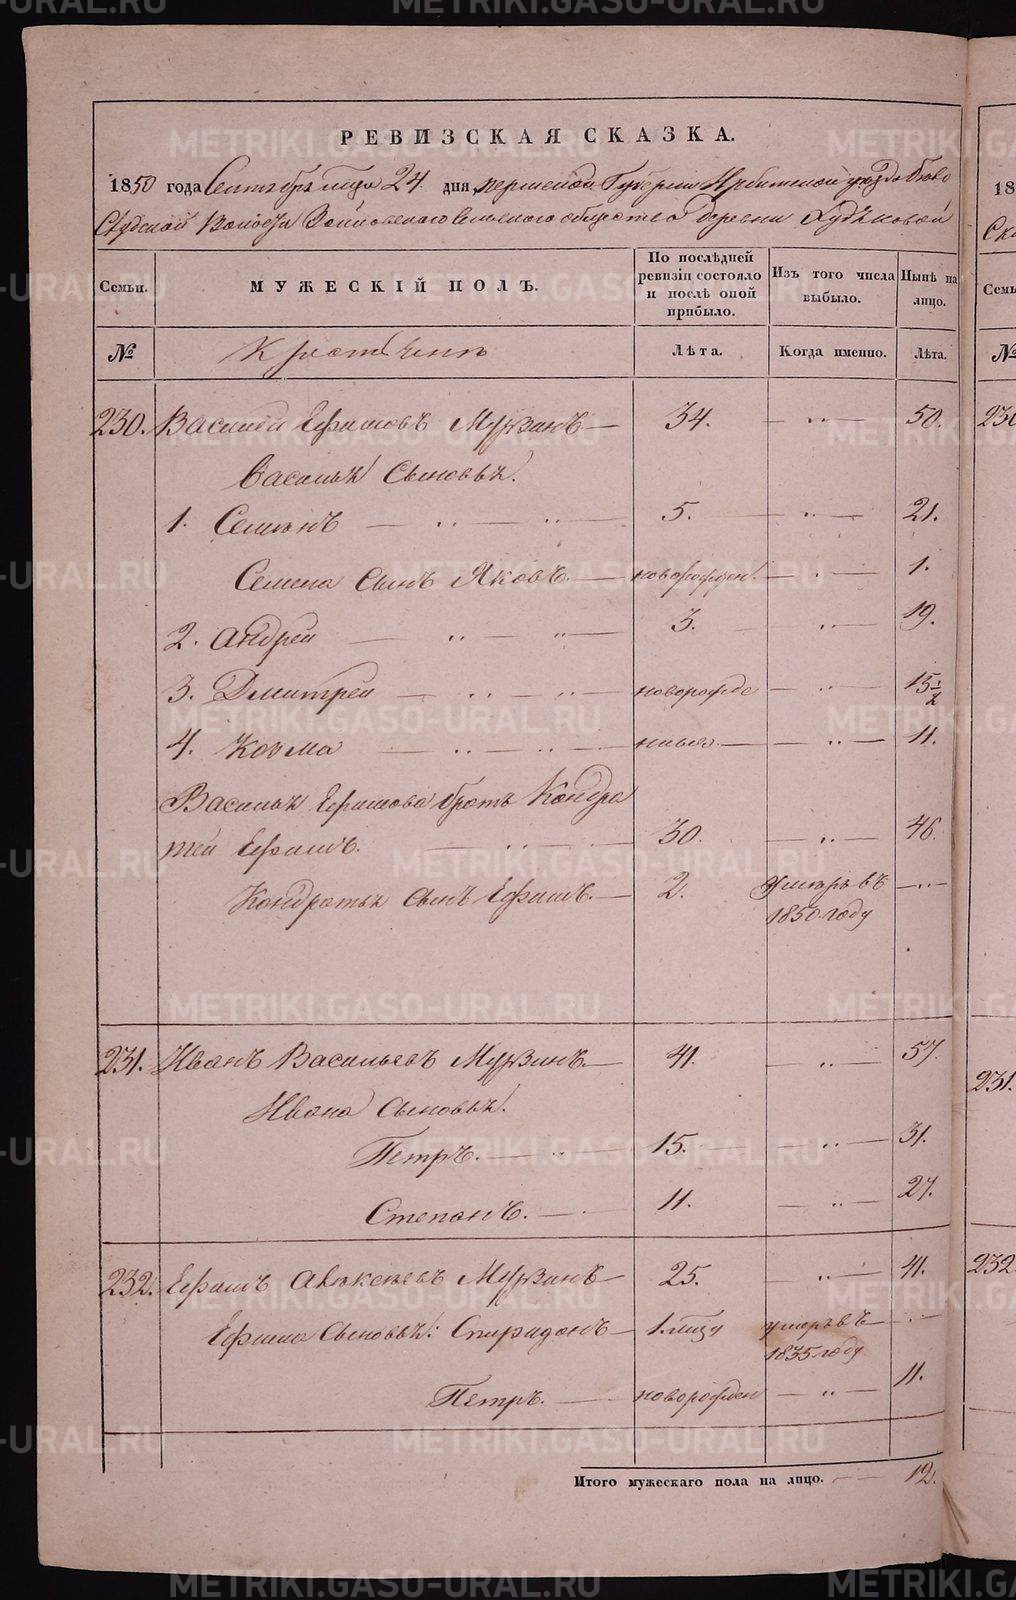 РЕВИЗСКАЯ СКАЗКА.
1850 года Сентября месяца 24 дня, Пермской Губернии Ирбитской уезда
Слудской Волости сельского общества Деревни Худяковой
Семьи.
МУЖЕСКІЙ ПОЛЪ.
По послѣдней ревизіи состояло и послѣ оной прибыло.
Изъ того числа выбыло.
Нынѣ на лицо.
№
Крестьянъ
Лѣта.
Когда именно.
Лѣта.
230. Василей Ефимовъ Мурзинъ — 34. — „ — 50.
Василья Сыновья:
1. Семенъ — „ „ — 5. — „ — 21.
Семена Сынъ Яковъ. — новорожден. — „ — 1.
2. Андрей — „ „ — 3. — „ — 19.
3. Дмитрей — „ „ — новорожде — „ — 15 1/2
4. Козма — „ „ — — „ — 11.
Василья Ефимова братъ Кондра
тей Ефимъ. — 30. — „ — 46.
Кондратья сынъ Ефимъ. — 2. Умеръ въ 1850 году — „ —
231. Иванъ Васильевъ Мурзинъ. — 41. — „ — 57.
Ивана Сыновья:
Петръ. — „ — 15. „ — 31.
Степанъ. — 11. — „ — 27.
232. Ефимъ Мурзинъ — 25. — „ — 41.
Ефима Сыновья: Спиридонъ — 1. году умеръ въ 1835 году — „ —
Петръ. — новорожден — „ — 11.
Итого мужескаго пола на лицо. — 12.
230
231.
232
METRIKI.GASO-URAL.RU